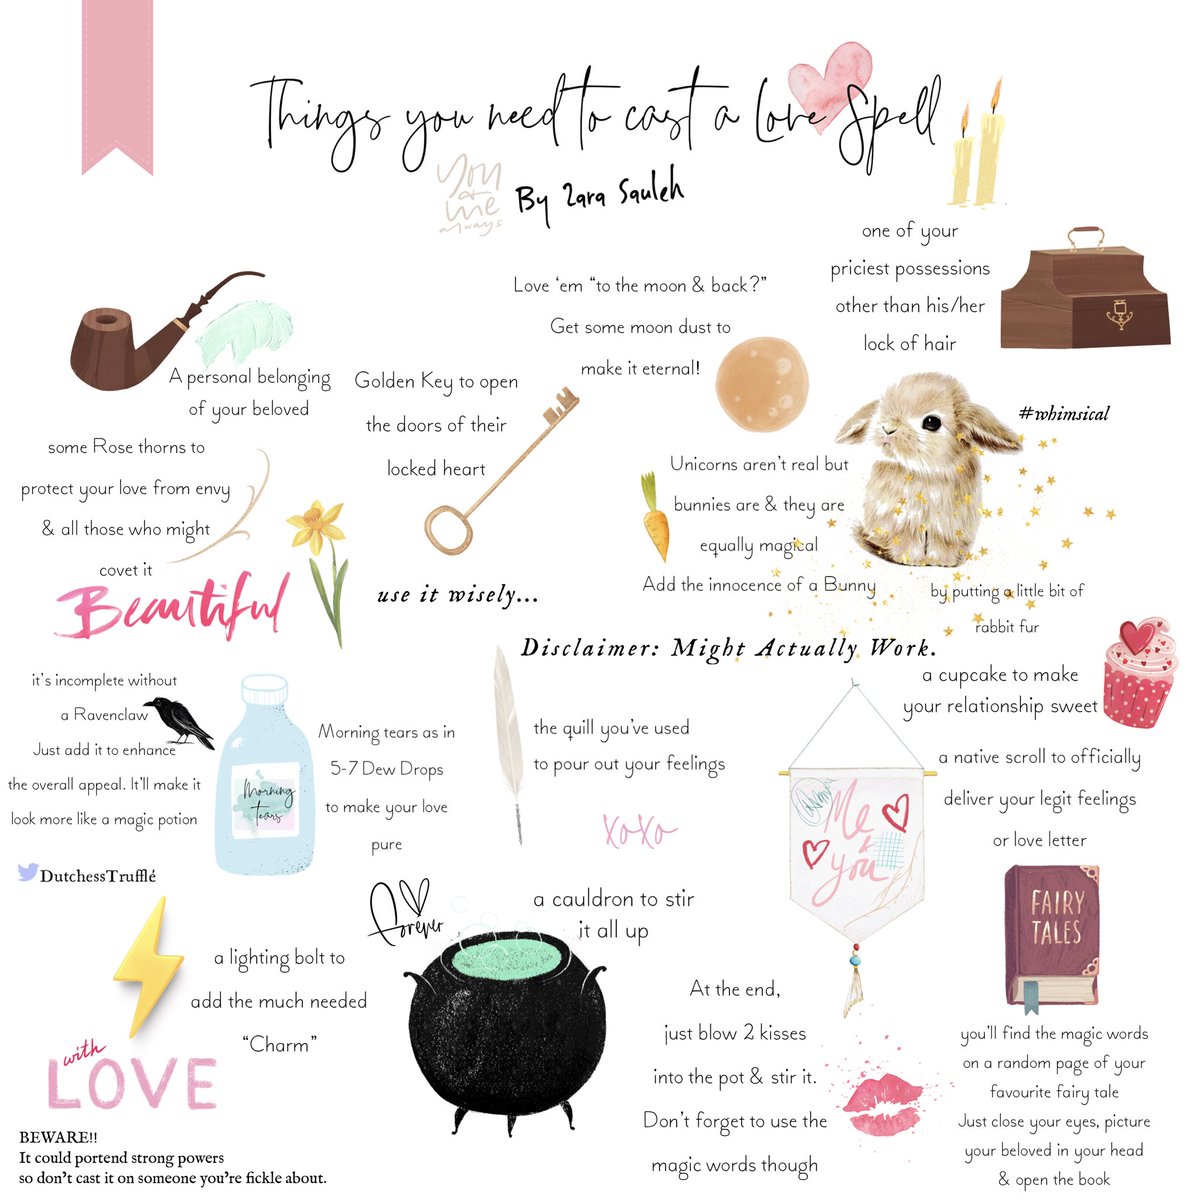 Things you need to cast a Love Spell
you
+
me
always
By Zara Sauleh
one of your
priciest possessions
other than his/her
lock of hair
Love ‘em “to the moon & back?”
Get some moon dust to
make it eternal!
A personal belonging
of your beloved
Golden Key to open
the doors of their
locked heart
#whimsical
some Rose thorns to
protect your love from envy
& all those who might
covet it
Unicorns aren’t real but
bunnies are & they are
equally magical
Add the innocence of a Bunny
by putting a little bit of
rabbit fur
Beautiful
use it wisely...
Disclaimer: Might Actually Work.
a cupcake to make
your relationship sweet
it’s incomplete without
a Ravenclaw
Just add it to enhance
the overall appeal. It’ll make it
look more like a magic potion
Morning
tears
Morning tears as in
5-7 Dew Drops
to make your love
pure
the quill you’ve used
to pour out your feelings
xoxo
Me
&
you
a native scroll to officially
deliver your legit feelings
or love letter
DutchessTrufflé
Forever
a cauldron to stir
it all up
FAIRY
TALES
a lighting bolt to
add the much needed
“Charm”
with
LOVE
At the end,
just blow 2 kisses
into the pot & stir it.
Don’t forget to use the
magic words though
you’ll find the magic words
on a random page of your
favourite fairy tale
Just close your eyes, picture
your beloved in your head
& open the book
BEWARE!!
It could portend strong powers
so don’t cast it on someone you’re fickle about.